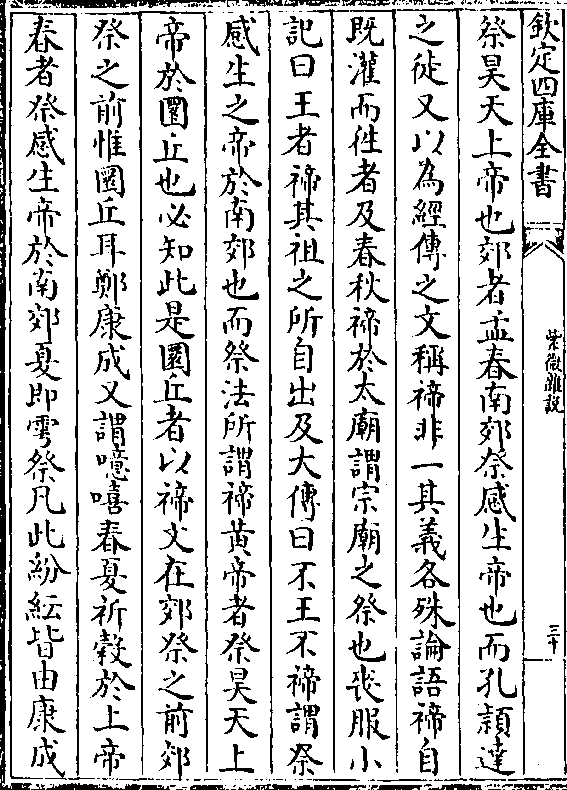 欽定四庫全書
紫微雜說
三十
祭昊天上帝也郊者孟春南郊祭感生帝也而孔頴達
之徒又以為經傳之文稱禘非一其義各殊論語禘自
既灌而徃者及春秋禘於太廟謂宗廟之祭也喪服小
記曰王者禘其祖之所自出及大傳曰不王不禘謂祭
感生之帝於南郊也而祭法所謂禘黄帝者祭昊天上
帝於圜丘也必知此是圜丘者以禘文在郊祭之前郊
祭之前惟圜丘耳鄭康成又謂噫嘻春夏祈穀於上帝
春者祭感生帝於南郊夏即雩祭凡此紛紜皆由康成